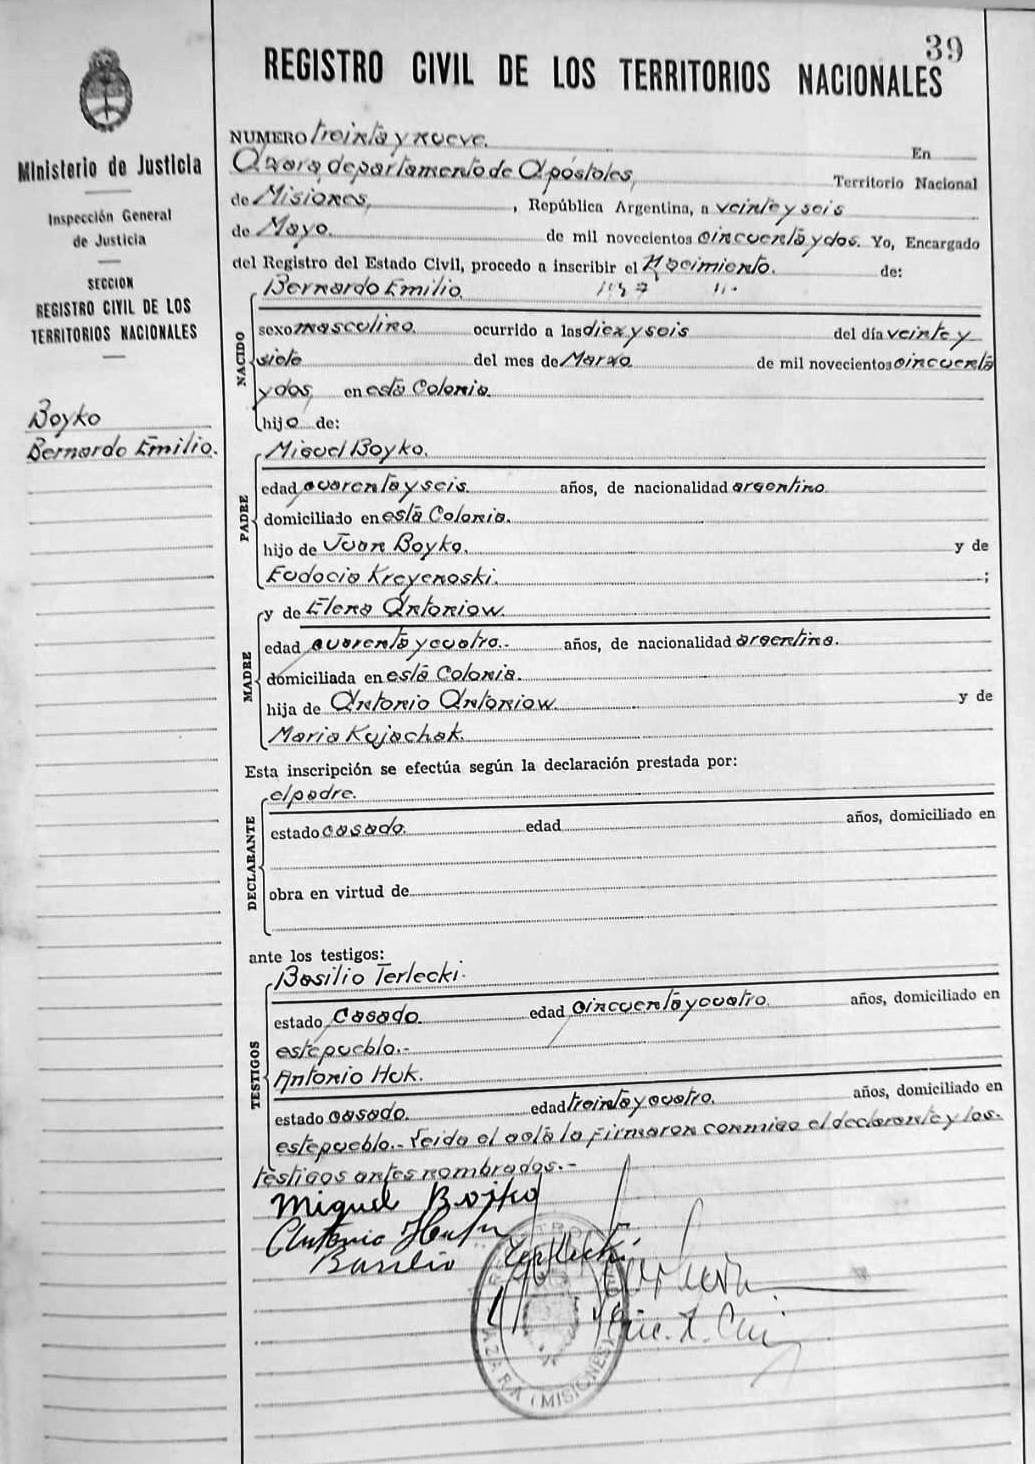 39
REGISTRO CIVIL DE LOS TERRITORIOS NACIONALES
Ministerio de Justicia
Inspección General
de Justicia
SECCION
REGISTRO CIVIL DE LOS
TERRITORIOS NACIONALES
Boyko
Bernardo Emilio.
NUMERO treinta y nueve. En
Azara, departamento de Apóstoles, Territorio Nacional
de Misiones, , República Argentina, a veinte y seis
de Mayo. de mil novecientos cincuenta y dos. Yo, Encargado
del Registro del Estado Civil, procedo a inscribir el Nacimiento. de:
NACIDO
Bernardo Emilio
sexo masculino ocurrido a las diez y seis del día veinte y
siete del mes de Marzo. de mil novecientos cincuenta
y dos, en está Colonia.
hijo de:
PADRE
Miguel Boyko.
edad cuarenta y seis. años, de nacionalidad argentino
domiciliado en está Colonia.
hijo de Juan Boyko. y de
Eudocia Kreyenoski. ;
MADRE
y de Elena Antoniow.
edad cuarenta y cuatro.- años, de nacionalidad argentina.
domiciliada en está Colonia.
hija de Antonio Antoniow y de
Maria Kujachak.
Esta inscripción se efectúa según la declaración prestada por:
DECLARANTE
el padre.
estado casado. edad años, domiciliado en
obra en virtud de
ante los testigos:
TESTIGOS
Basilio Terlecki.
estado Casado. edad cincuenta y cuatro. años, domiciliado en
este pueblo.-
Antonio Huk.
estado casado. edad treinta y cuatro. años, domiciliado en
este pueblo.- Leida el acta la firmaron conmigo el declarante y los
testigos antes nombrados.-
Miguel Bojko
Antonio
Basilio Terlecki
REGISTRO CIVIL
AZARA (MISIONES)